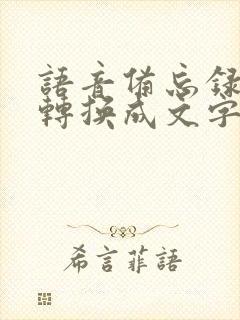 語音備忘錄
轉換成文字
希言菲語